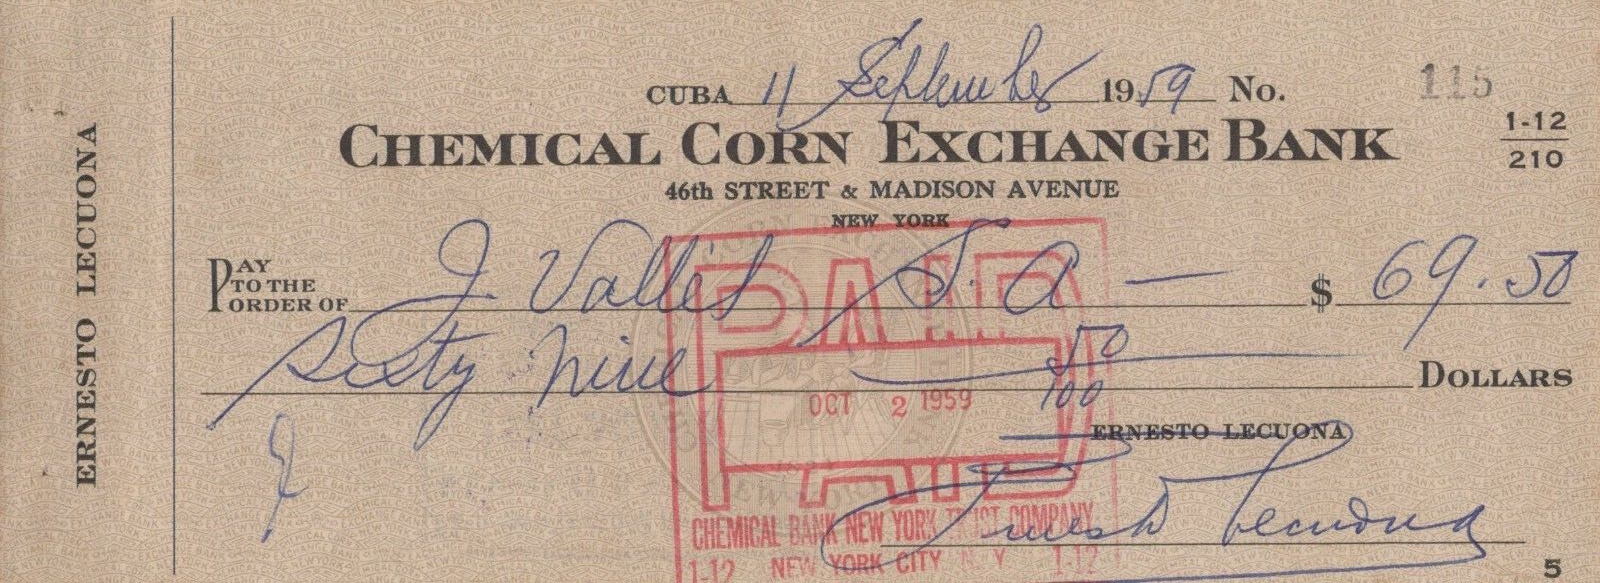 CUBA 11 September 1959 No. 115
CHEMICAL CORN EXCHANGE BANK
1-12
210
46th STREET & MADISON AVENUE
NEW YORK
PAY TO THE ORDER OF J Vallés S. A — $ 69.50
Sixty nine 50/100 DOLLARS
PAID
OCT 2 1959
ERNESTO LECUONA
Ernesto Lecuona
CHEMICAL BANK NEW YORK TRUST COMPANY
1-12 NEW YORK CITY N Y 1-12
5
ERNESTO LECUONA